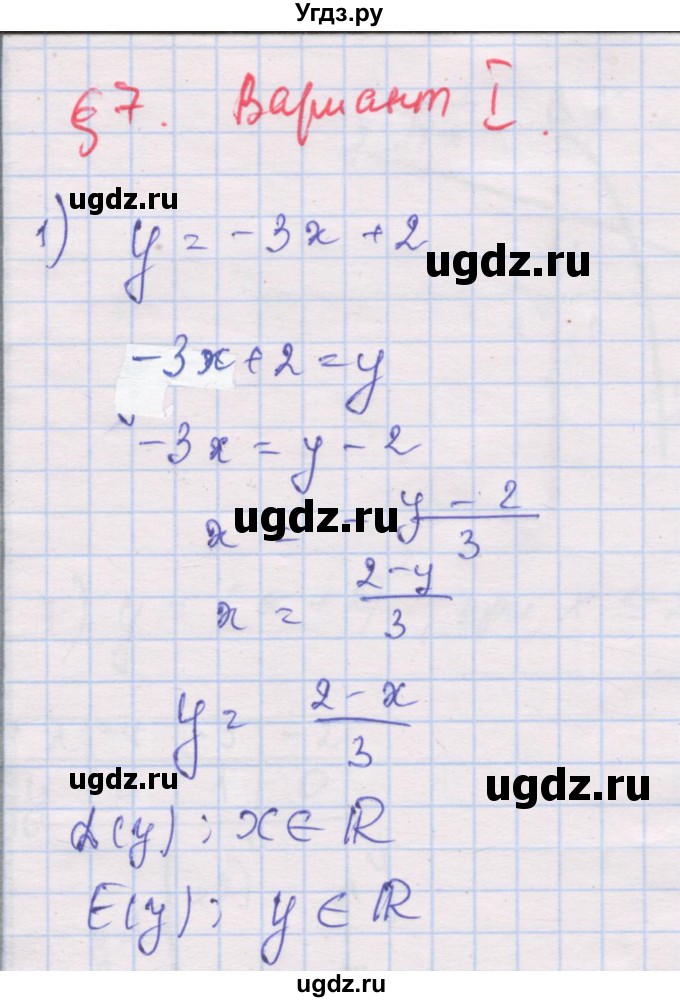 Угдз.ру
§ 7. Вариант I.
ugdz.ru
1) y = -3x + 2
ugdz.ru
-3x + 2 = y
-3x = y - 2
ugdz.ru
x = - y - 2 / 3
x = 2 - y / 3
y = 2 - x / 3
ugdz.ru
ugdz.ru
D(y): x ∈ R
E(y): y ∈ R
ugdz.ru